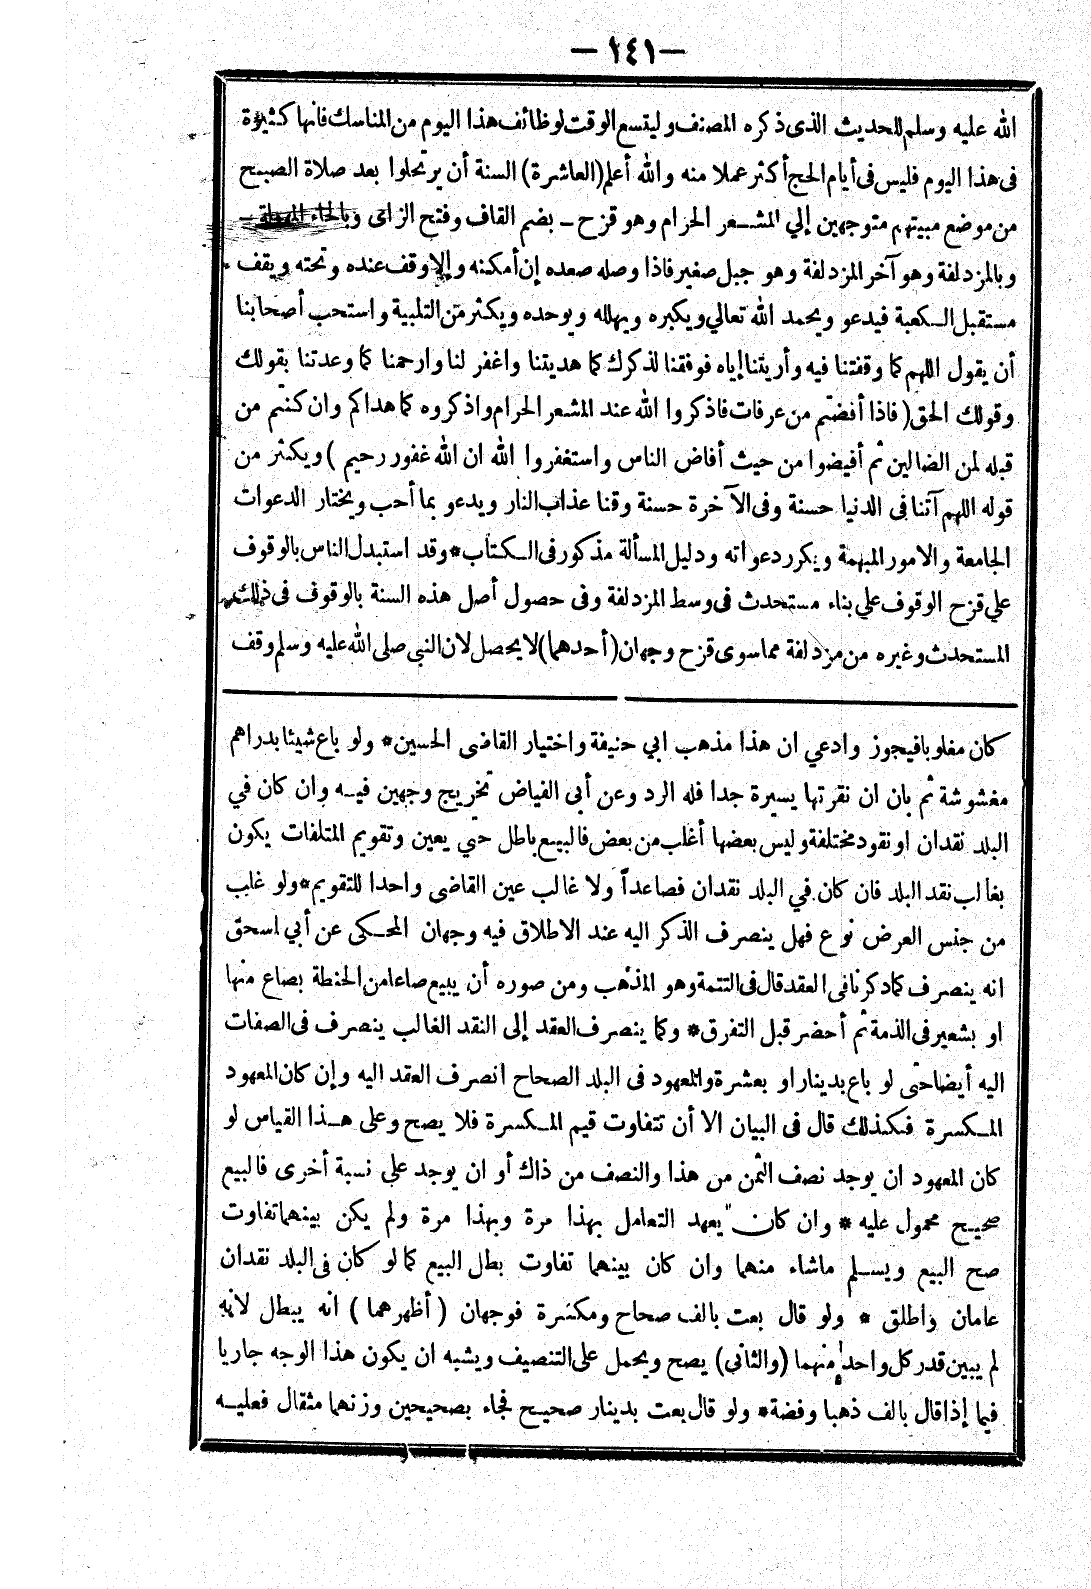 — ١٤١ —
الله عليه وسلم للحديث الذى ذكره المصنف وليتسع الوقت لوظائف هذا اليوم من المناسك فانها كثيرة
فى هذا اليوم فليس فى أيام الحج أكثر عملا منه والله أعلم (العاشرة) السنة أن يرتحلوا بعد صلاة الصبح
من موضع مبيتهم متوجهين إلي المشعر الحرام وهو قزح - بضم القاف وفتح الزاى وبالحاء المهملة -
وبالمزدلفة وهو آخر المزدلفة وهو جبل صغير فاذا وصله صعده إن أمكنه وإلا وقف عنده وتحته ويقف
مستقبل الكعبة فيدعو ويحمد الله تعالي ويكبره ويهلله ويوحده ويكثر من التلبية واستحب أصحابنا
أن يقول اللهم كما وقفتنا فيه وأريتنا إياه فوفقنا لذكرك كما هديتنا واغفر لنا وارحمنا كما وعدتنا بقولك
وقولك الحق (فاذا أفضتم من عرفات فاذكروا الله عند المشعر الحرام واذكروه كما هداكم وان كنتم من
قبله لمن الضالين ثم أفيضوا من حيث أفاض الناس واستغفروا الله ان الله غفور رحيم) ويكثر من
قوله اللهم آتنا فى الدنيا حسنة وفى الآخرة حسنة وقنا عذاب النار ويدعو بما أحب ويختار الدعوات
الجامعة والامور المبهمة ويكرر دعواته ودليل المسألة مذكور فى الكتاب * وقد استبدل الناس بالوقوف
علي قزح الوقوف علي بناء مستحدث فى وسط المزدلفة وفى حصول أصل هذه السنة بالوقوف فى ذلك
المستحدث وغيره من مزدلفة مما سوى قزح وجهان (أحدهما) لا يحصل لان النبى صلى الله عليه وسلم وقف
كان مغلوبا فيجوز وادعي ان هذا مذهب ابي حنيفة واختيار القاضى الحسين * ولو باع شيئا بدراهم
مغشوشة ثم بان ان نقرتها يسيرة جدا فله الرد وعن أبى الفياض تخريج وجهين فيه وان كان في
البلد نقدان او نقود مختلفة وليس بعضها أغلب من بعض فالبيع باطل حتي يعين وتقويم المتلفات يكون
بغالب نقد البلد فان كان في البلد نقدان فصاعداً ولا غالب عين القاضى واحدا للتقويم * ولو غلب
من جنس العرض نوع فهل ينصرف الذكر اليه عند الاطلاق فيه وجهان المحكى عن أبي اسحق
انه ينصرف كما ذكرنا فى العقد قال فى التتمة وهو المذهب ومن صوره أن يبيع صاعا من الحنطة بصاع منها
او بشعير فى الذمة ثم أحضر قبل التفرق * وكما ينصرف العقد إلى النقد الغالب ينصرف فى الصفات
اليه أيضا حتى لو باع بدينار او بعشرة والمعهود فى البلد الصحاح انصرف العقد اليه وإن كان المعهود
المكسرة فكذلك قال فى البيان الا أن تتفاوت قيم المكسرة فلا يصح وعلى هذا القياس لو
كان المعهود ان يوجد نصف الثمن من هذا والنصف من ذاك أو ان يوجد علي نسبة أخرى فالبيع
صحيح محمول عليه * وان كان يعهد التعامل بهذا مرة وبهذا مرة ولم يكن بينهما تفاوت
صح البيع ويسلم ماشاء منهما وان كان بينهما تفاوت بطل البيع كما لو كان فى البلد نقدان
عامان واطلق * ولو قال بعت بالف صحاح ومكسرة فوجهان (أظهرهما) انه يبطل لانه
لم يبين قدر كل واحد منهما (والثانى) يصح ويحمل على التنصيف ويشبه ان يكون هذا الوجه جاريا
فيما إذا قال بالف ذهبا وفضة * ولو قال بعت بدينار صحيح فجاء بصحيحين وزنهما مثقال فعليه